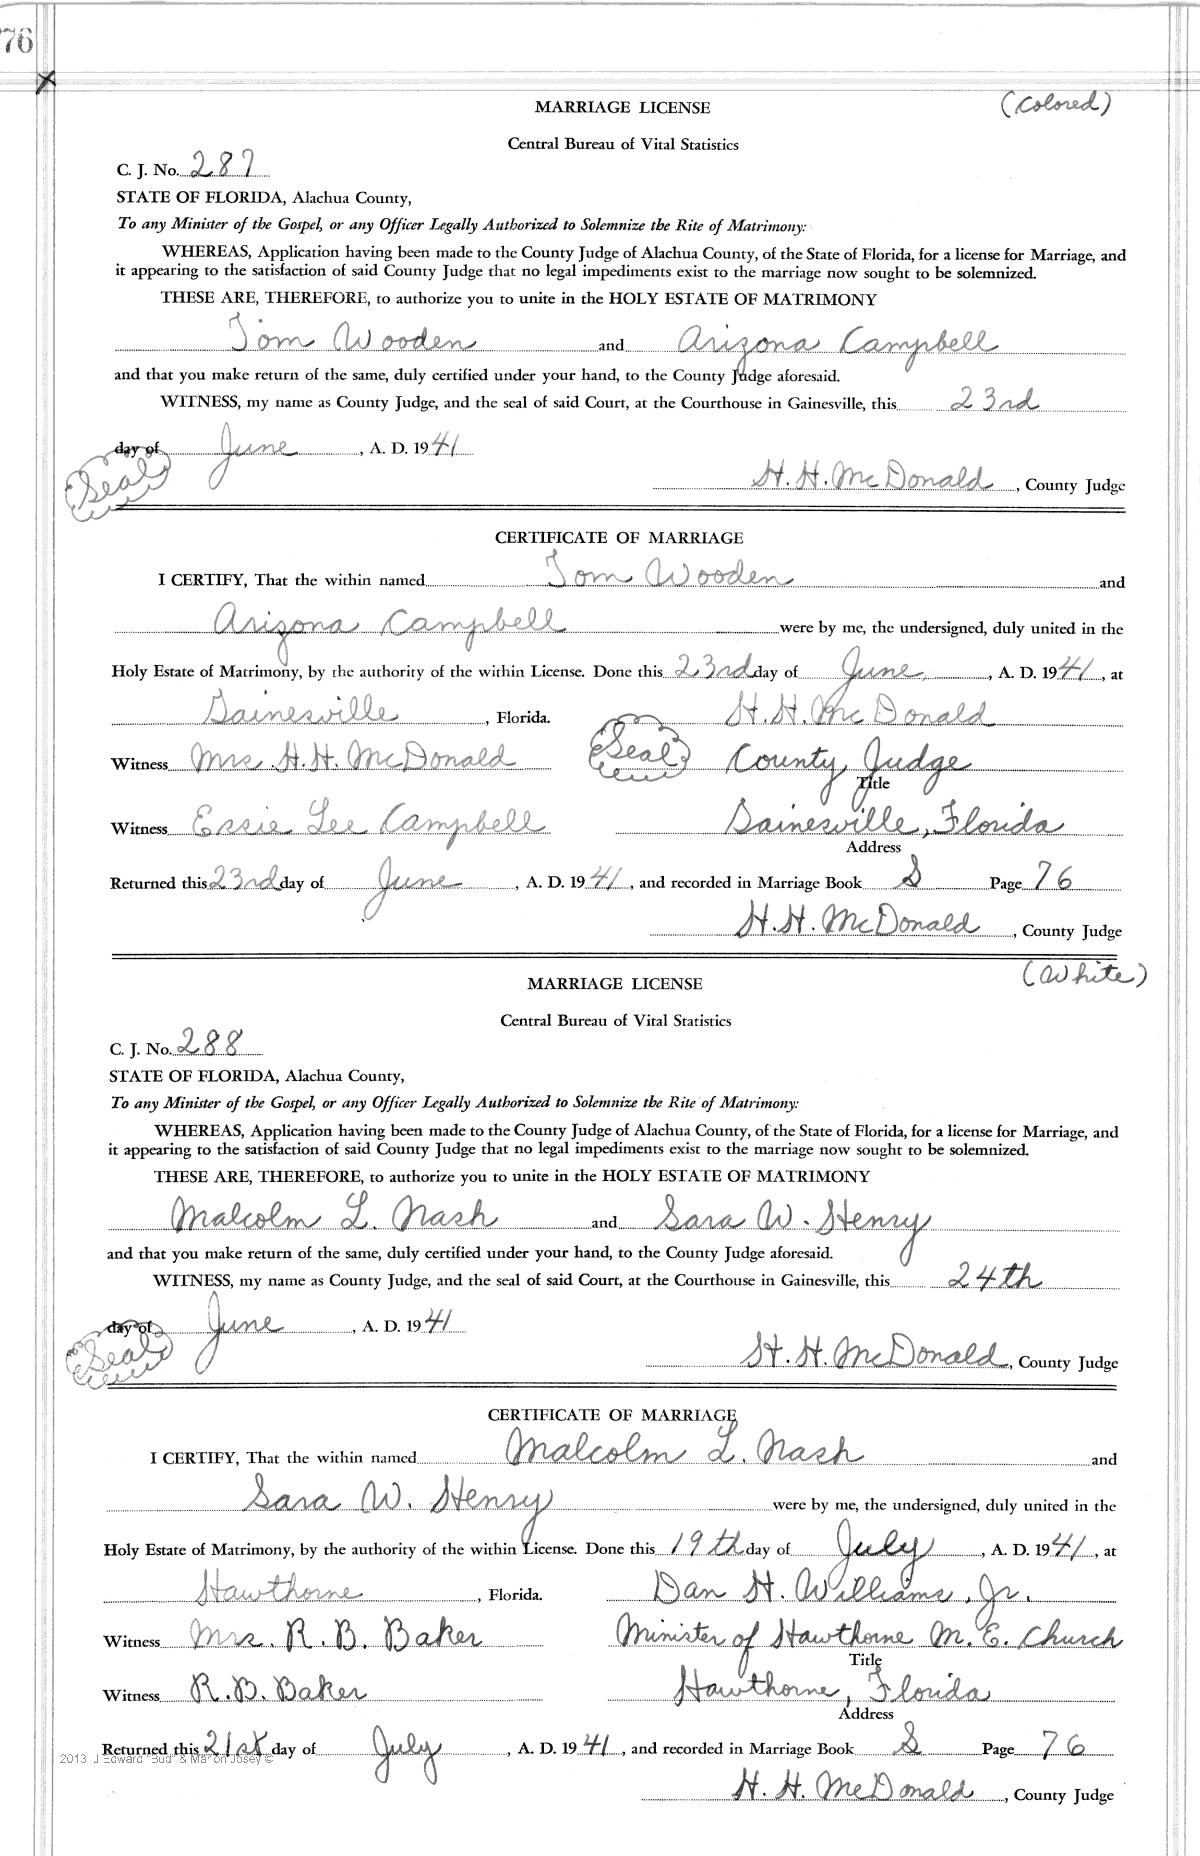 76
MARRIAGE LICENSE (Colored)
Central Bureau of Vital Statistics
C. J. No. 287
STATE OF FLORIDA, Alachua County,
To any Minister of the Gospel, or any Officer Legally Authorized to Solemnize the Rite of Matrimony:
WHEREAS, Application having been made to the County Judge of Alachua County, of the State of Florida, for a license for Marriage, and
it appearing to the satisfaction of said County Judge that no legal impediments exist to the marriage now sought to be solemnized.
THESE ARE, THEREFORE, to authorize you to unite in the HOLY ESTATE OF MATRIMONY
Tom Wooden and Arizona Campbell
and that you make return of the same, duly certified under your hand, to the County Judge aforesaid.
WITNESS, my name as County Judge, and the seal of said Court, at the Courthouse in Gainesville, this 23rd
day of June, A. D. 1941
Seal H. H. McDonald, County Judge
CERTIFICATE OF MARRIAGE
I CERTIFY, That the within named Tom Wooden and
Arizona Campbell were by me, the undersigned, duly united in the
Holy Estate of Matrimony, by the authority of the within License. Done this 23rd day of June, A. D. 1941, at
Gainesville, Florida. H. H. McDonald
Witness Mrs. H. H. McDonald Seal County Judge
Title
Witness Essie Lee Campbell Gainesville, Florida
Address
Returned this 23rd day of June, A. D. 1941, and recorded in Marriage Book S Page 76
H. H. McDonald, County Judge
(White)
MARRIAGE LICENSE
Central Bureau of Vital Statistics
C. J. No. 288
STATE OF FLORIDA, Alachua County,
To any Minister of the Gospel, or any Officer Legally Authorized to Solemnize the Rite of Matrimony:
WHEREAS, Application having been made to the County Judge of Alachua County, of the State of Florida, for a license for Marriage, and
it appearing to the satisfaction of said County Judge that no legal impediments exist to the marriage now sought to be solemnized.
THESE ARE, THEREFORE, to authorize you to unite in the HOLY ESTATE OF MATRIMONY
Malcolm L. Nash and Sara W. Henry
and that you make return of the same, duly certified under your hand, to the County Judge aforesaid.
WITNESS, my name as County Judge, and the seal of said Court, at the Courthouse in Gainesville, this 24th
day of June, A. D. 1941
Seal H. H. McDonald, County Judge
CERTIFICATE OF MARRIAGE
I CERTIFY, That the within named Malcolm L. Nash and
Sara W. Henry were by me, the undersigned, duly united in the
Holy Estate of Matrimony, by the authority of the within License. Done this 19th day of July, A. D. 1941, at
Hawthorne, Florida. Dan H. Williams, Jr.
Witness Mrs. R. B. Baker Minister of Hawthorne M. E. Church
Title
Witness R. B. Baker Hawthorne, Florida
Address
Returned this 21st day of July, A. D. 1941, and recorded in Marriage Book S Page 76
2013 J Edward "Bud" & Marion Josey ©
H. H. McDonald, County Judge